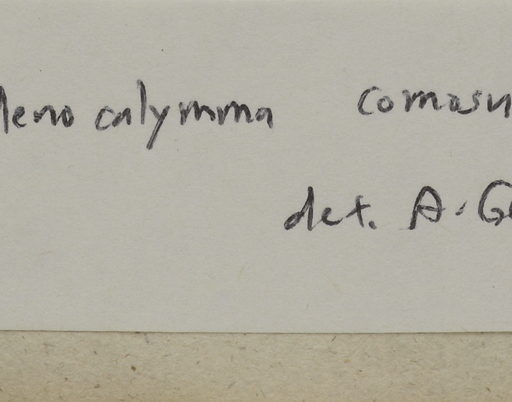 leno calymma comosu
det. A. Ge